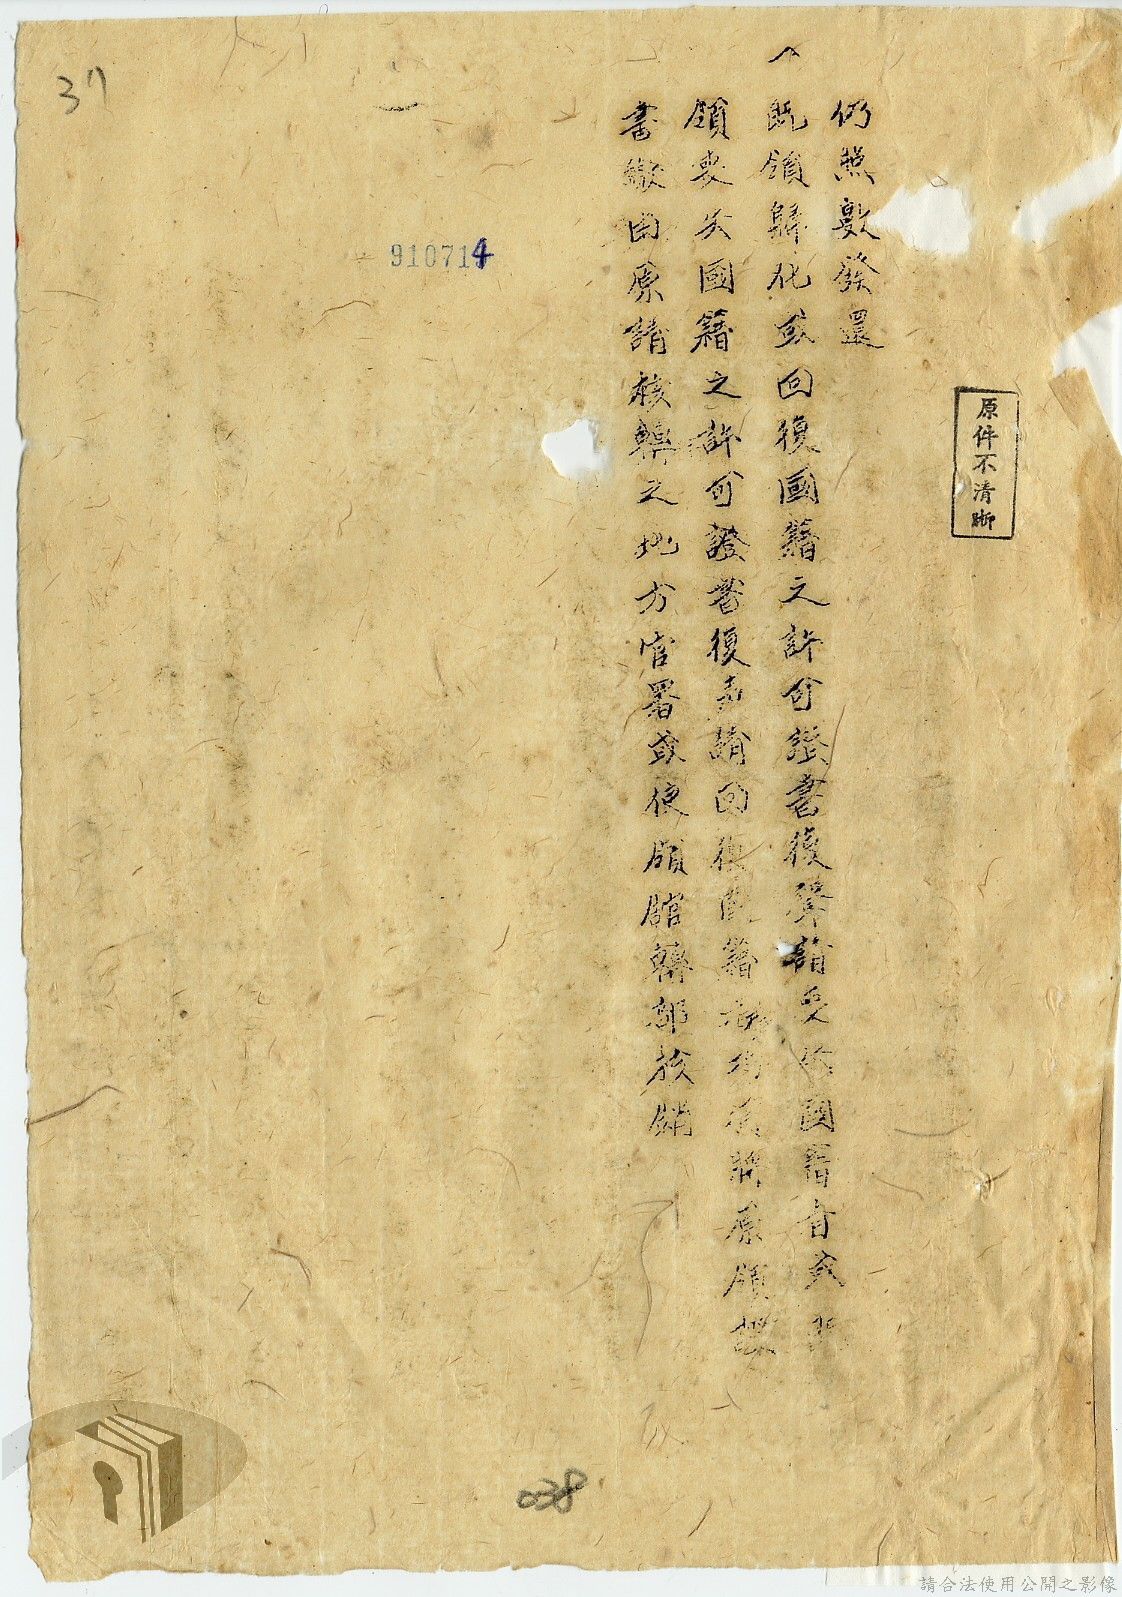 原件不清晰
仍照數發還
八既領歸化或回復國籍之許可證書後聲請喪失國籍者或
領喪失國籍之許可證書復聲請回復國籍者均須將原領證
書繳由原請核轉之地方官署或使領館轉部核銷
910714
37
038
請合法使用公開之影像